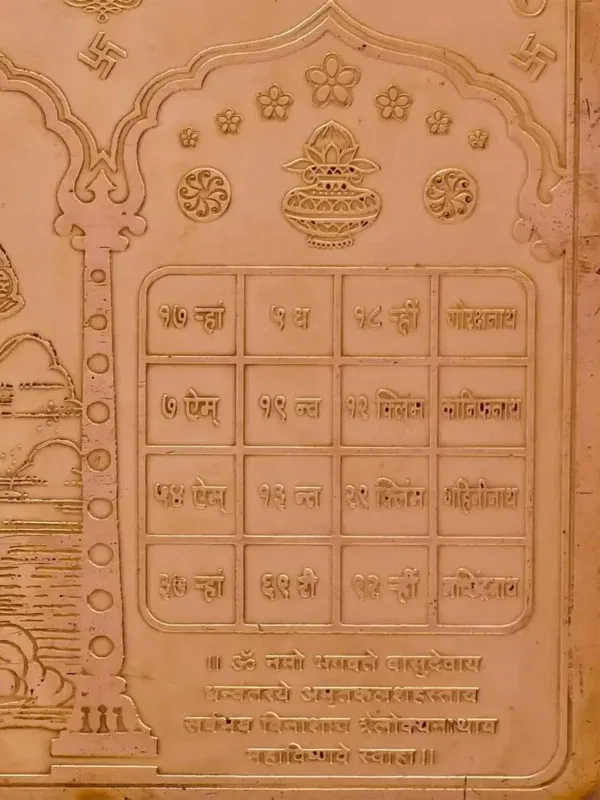 १७ ऱ्हां ५ ध १८ ऱ्हीं गोरक्षनाथ
७ ऐम् १९ न्त १२ क्लिंम कानिफनाथ
५४ ऐम् १३ न्त २९ क्लिंम गहिनीनाथ
३७ ऱ्हां ६९ री ९२ ऱ्हीं मच्छिंद्रनाथ
॥ ॐ नमो भगवते वासुदेवाय
धन्वंतरये अमृतकलशहस्ताय
सर्वभय विनाशाय त्रैलोक्यनाथाय
महाविष्णवे स्वाहा॥